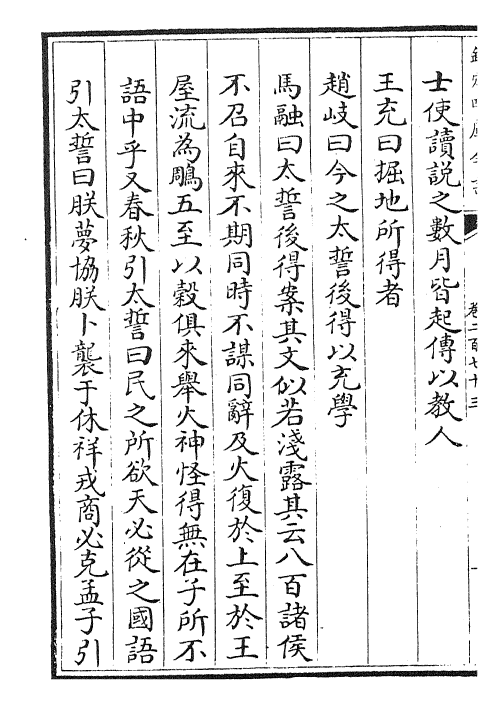 士使讀説之數月皆起傳以教人
王充曰掘地所得者
趙岐曰今之太誓後得以充學
馬融曰太誓後得案其文似若淺露其云八百諸侯
不召自來不期同時不謀同辭及火復於上至於王
屋流為鵰五至以榖俱來舉火神怪得無在子所不
語中乎又春秋引太誓曰民之所欲天必從之國語
引太誓曰朕夢協朕卜襲于休祥戎商必克孟子引
卷二百七十三